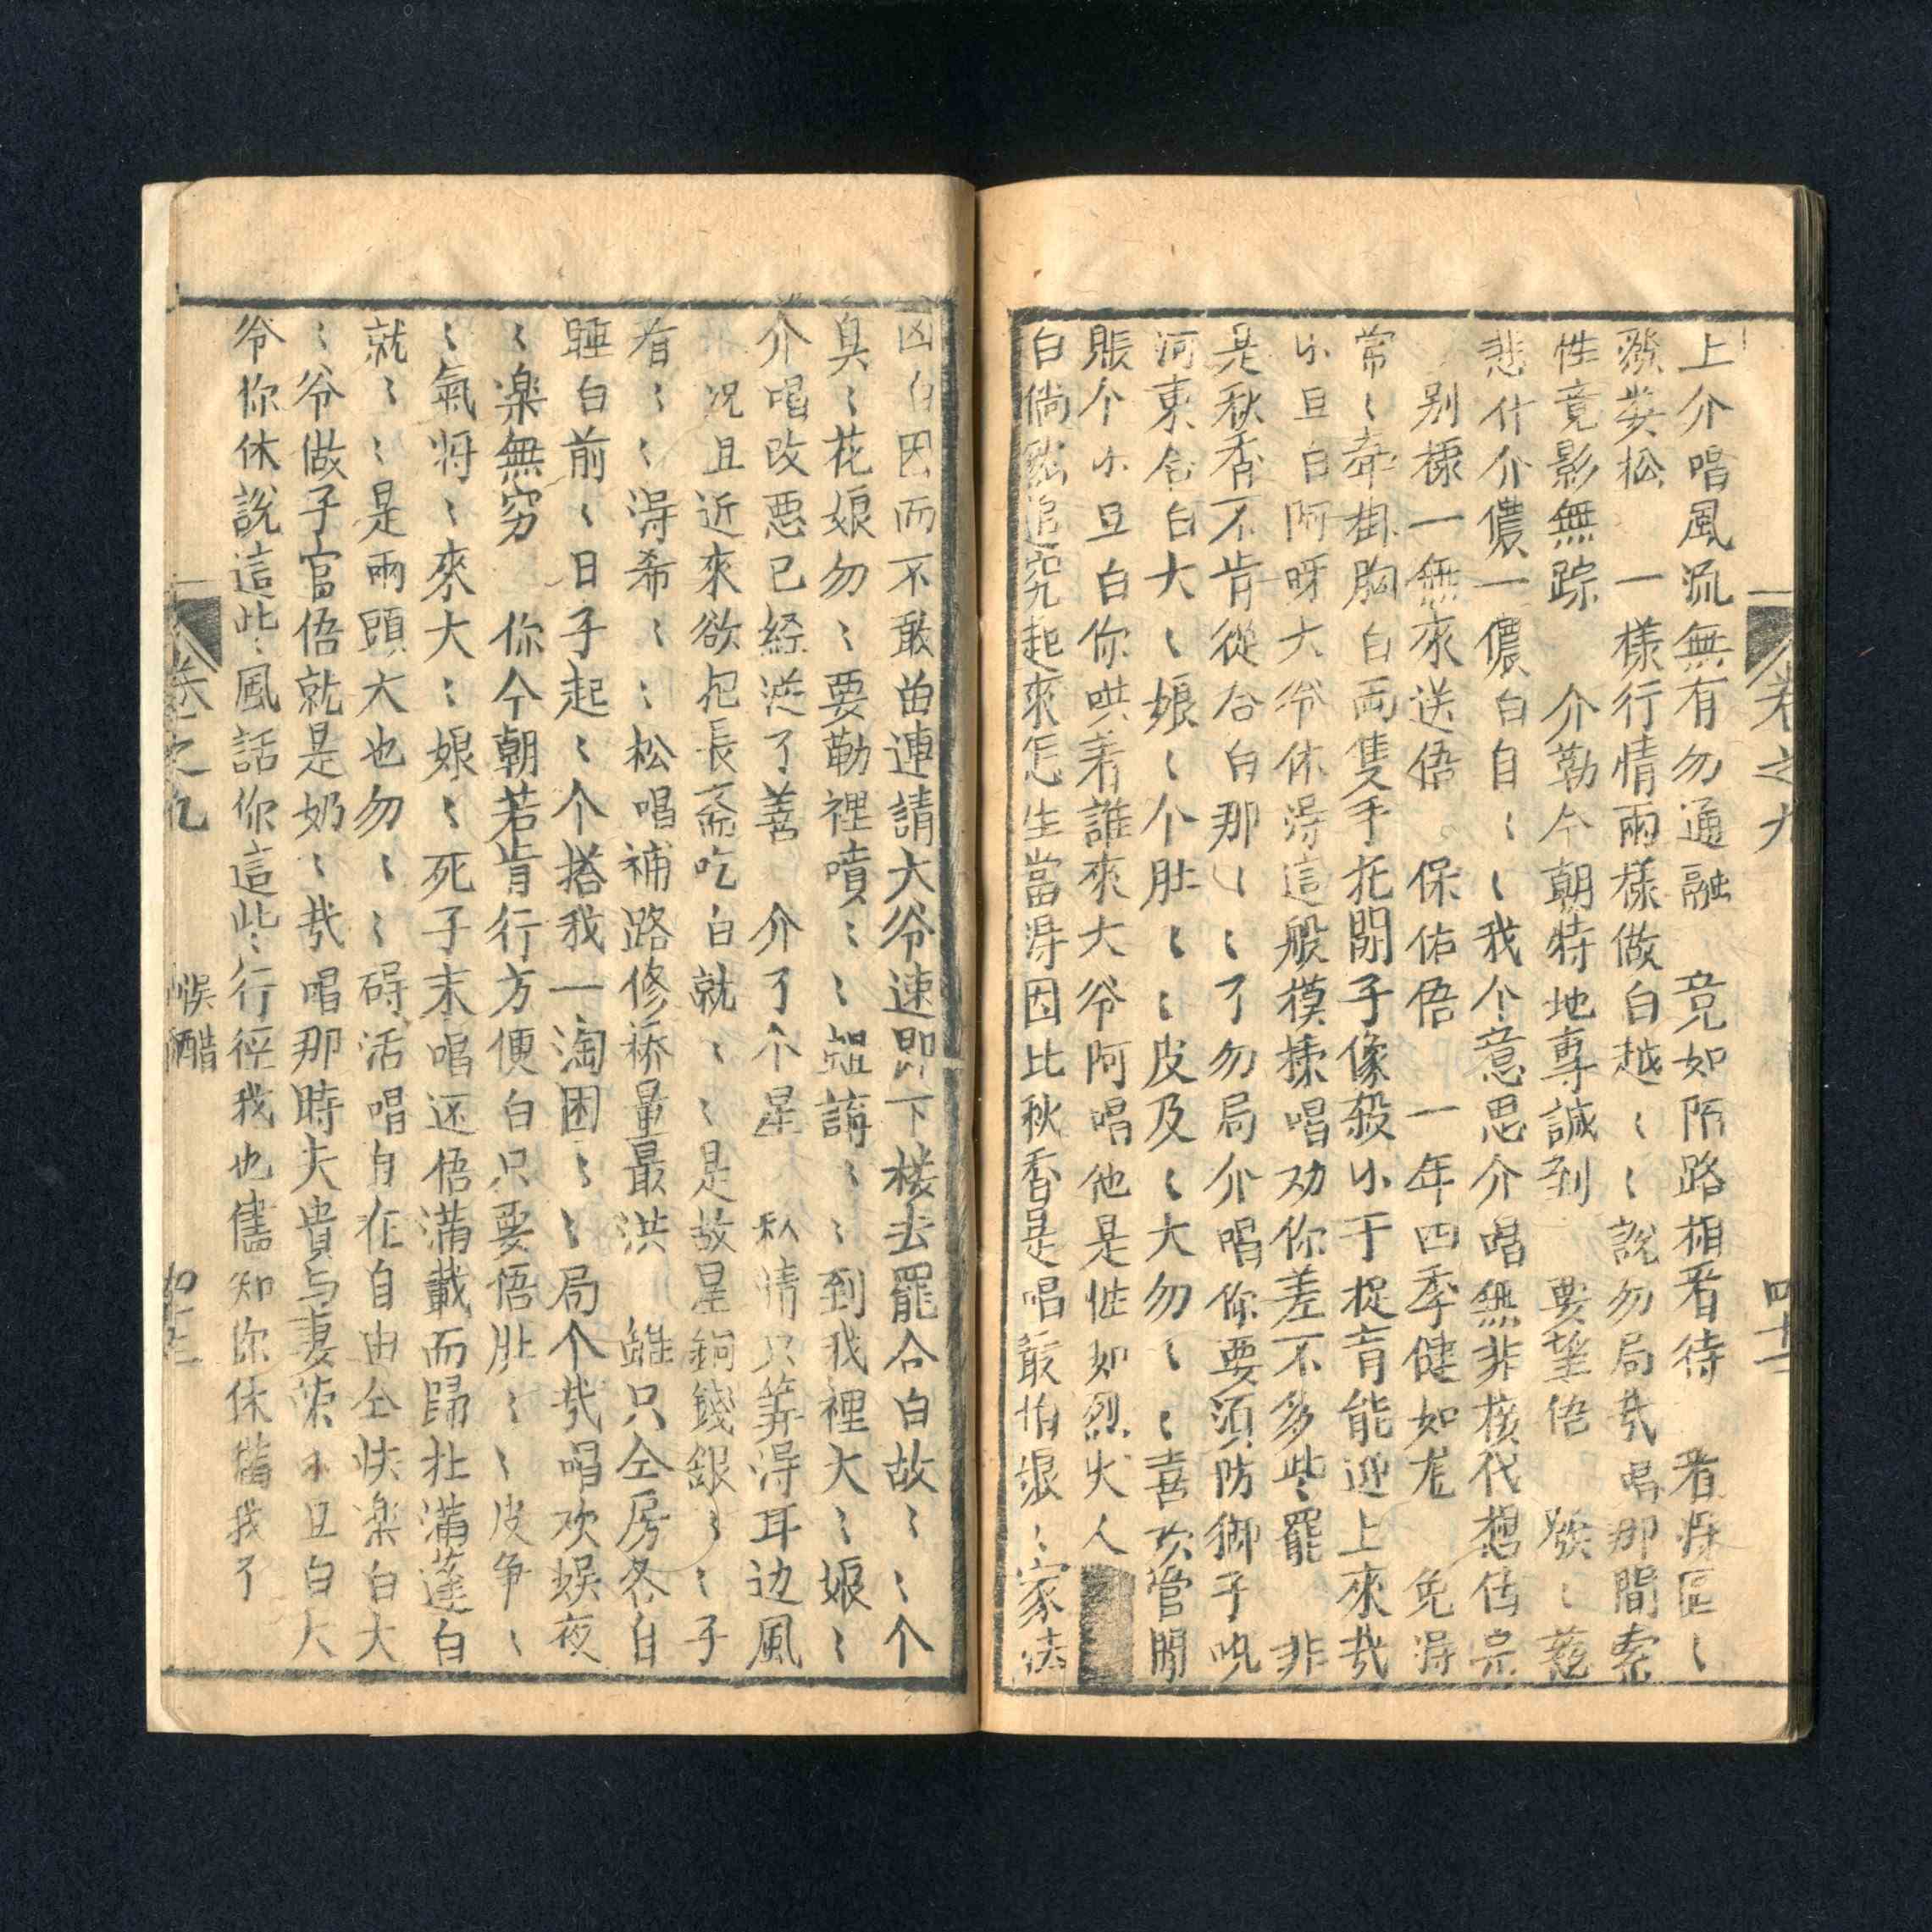 卷之九
四十二
上介唱風流無有勿通融 竟如陌路相看待 看得區〻
發樊松 一樣行情兩樣做白越〻〻說勿局㦲唱那間索
性竟影無踪 介勒今朝特地專誠到 要望俉 發〻慈
悲什介儂一儂白自〻〻我个意思介唱無非核代想估宗
別樣一無來送俉 保佑俉 一年四季健如尨 免得
常〻牽掛胸白両隻手托開子像殺小干捉盲能迎上來㦲
小旦白阿呀大爷休淂這般模様唱劝你差不多些〻罷 非
是秋香不肯從合白那〻〻了勿局介唱你要須防御子吼
河東合白大〻娘〻个肚〻〻皮及〻大勿〻〻喜欢管閒
賬个小旦白你哄着誰來大爷阿唱他是性如烈火人
白倘然追究起來怎生當淂因比秋香是唱最怕狠〻家法
凶白因而不敢曲連請大爷速即下楼去罷合白故〻〻个
臭〻花娘勿〻要勒裡噴〻〻蛆講〻〻到我裡大〻娘〻
介唱改悪已経送了善 介了个星 私情只算淂耳边風
况且近來欲把長斋吃白就〻〻是故星銅錢銀〻〻子
看〻〻淂希〻〻松唱補路修桥量最洪 雖只仝房各自
睡白前〻日子起〻个搭我一淘困〻〻局个㦲唱欢娱夜
〻楽無穷 你今朝若肯行方便白只要悟肚〻〻皮争〻
〻氣将〻來大〻娘〻死子末唱还俉满載而歸扯滿篷白
就〻〻是兩頭大也勿〻〻碍活唱自在自由仝快楽白大
〻爷做子官俉就是奶〻㦲唱那時夫貴与妻荣小旦白大
爷你休說這些〻風話你這些〻行徑我也儘知你休瞞我了
卷之九
悮醋